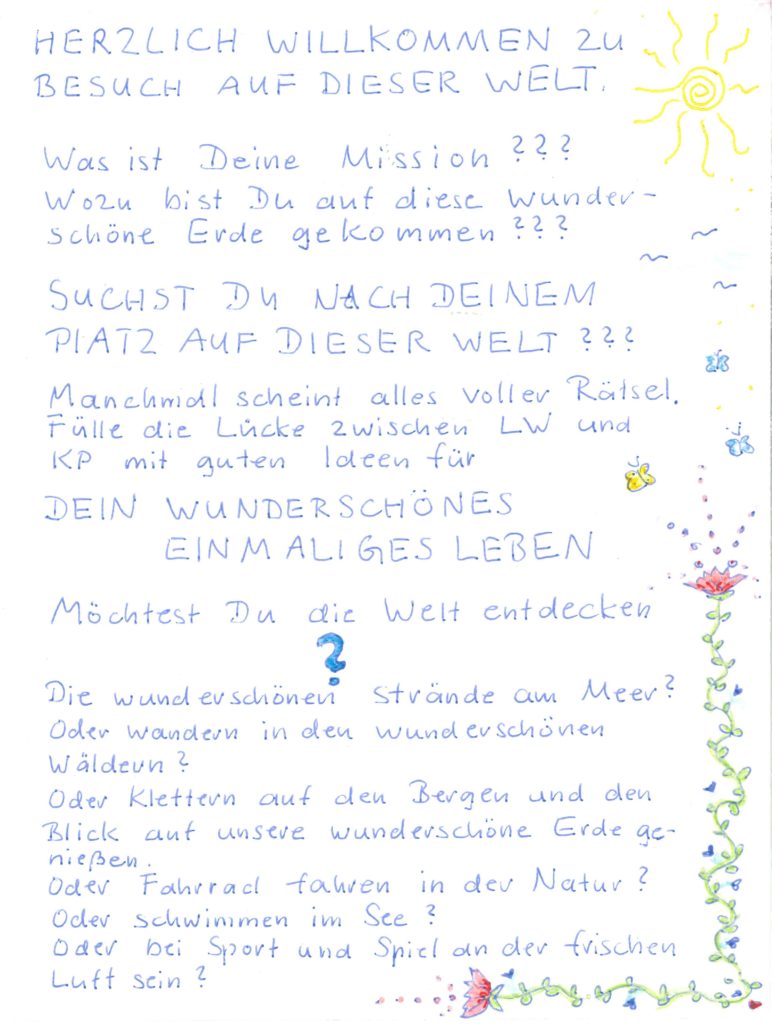 HERZLICH WILLKOMMEN ZU
BESUCH AUF DIESER WELT.
Was ist Deine Mission ???
Wozu bist Du auf diese wunder-
schöne Erde gekommen ???
SUCHST DU NACH DEINEM
PLATZ AUF DIESER WELT ???
Manchmal scheint alles voller Rätsel.
Fülle die Lücke zwischen LW und
KP mit guten Ideen für
DEIN WUNDERSCHÖNES
EINMALIGES LEBEN
Möchtest Du die Welt entdecken
?
Die wunderschönen Strände am Meer?
Oder wandern in den wunderschönen
Wäldern?
Oder Klettern auf den Bergen und den
Blick auf unsere wunderschöne Erde ge-
nießen.
Oder Fahrrad fahren in der Natur?
Oder schwimmen im See?
Oder bei Sport und Spiel an der frischen
Luft sein?